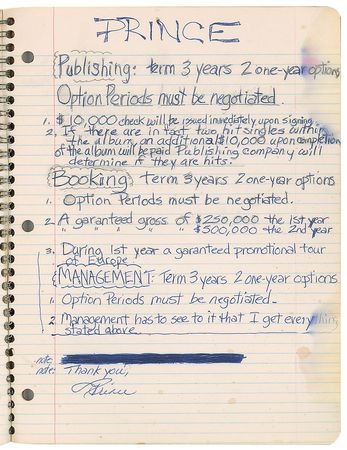 PRINCE
Publishing: term 3 years 2 one-year options
Option Periods must be negotiated.
1. $10,000 check will be issued immediately upon signing
2. If there are in fact two hit singles within
the album, an additional $10,000 upon completion
of the album will be paid. Publishing company will
determine if they are hits.
Booking: term 3 years 2 one-year options
1. Option Periods must be negotiated.
2. A garanteed gross of $250,000 the 1st year
" " " " $500,000 the 2nd year
3. During 1st year a garanteed promotional tour
of Europe.
MANAGEMENT: Term 3 years 2 one-year options
1. Option Periods must be negotiated.
2. Management has to see to it that I get everything
stated above.
note:
note: Thank you,
Prince